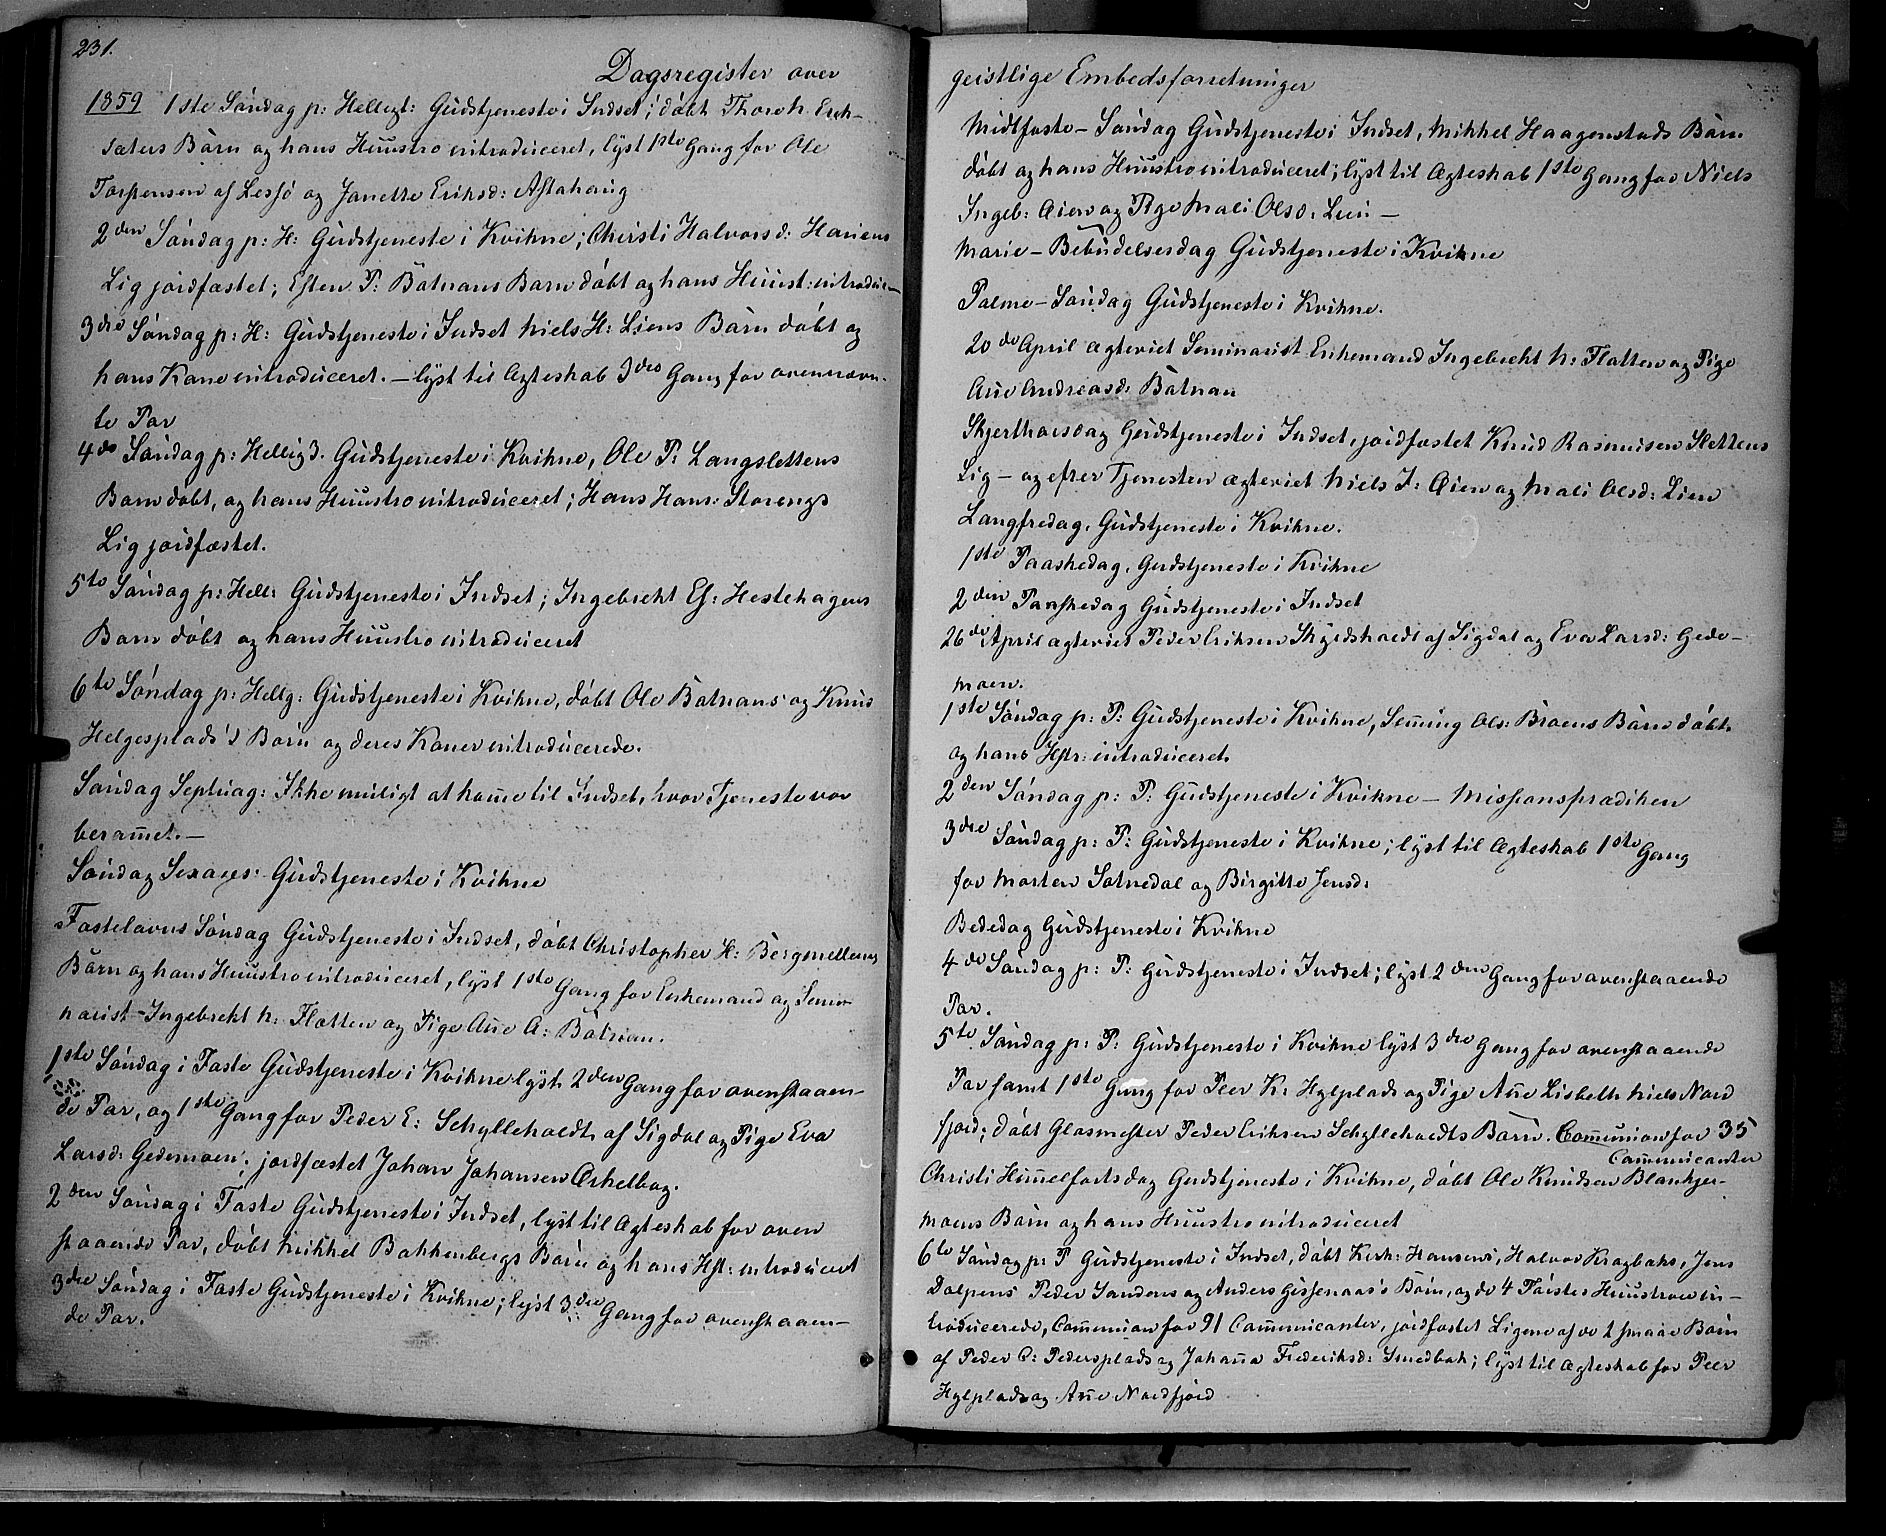 231.
Dagsregister over
1859 1ste Söndag p: Helligt: Gudstjeneste i Indset; döbt Thoreh. Enek-
sæters Barn og hans Huustro introduceret, lyst 1ste Gang for Ole
Torpensen af Lessö og Janette Eriksd: Aftahaug
2den Söndag p: H: Gudstjeneste i Kvikne; Christi Halvorsd: Hariens
Lig jordfæstet; Esten P: Bätnans Barn döbt og hans Huust: introduce-
3die Söndag p: H: Gudstjeneste i Indset Niels H: Liens Barn döbt og
hans Kone introduceret. – lyst til Ægteskab 3die Gang for ovennævn-
te Par
4de Söndag p: Hellig3. Gudstjeneste i Kvikne, Ole P: Langslettens
Barn döbt, og hans Huustro introduceret; Hans Hans: Storengs
Lig jordfæstet.
5te Söndag p: Hell: Gudstjeneste i Indset; Ingebrekt Es: Hestehagens
Barn döbt og hans Huustro introduceret
6te Söndag p: Hellg: Gudstjeneste i Kvikne, döbt Ole Batnans og Knud
Helgesplads's Børn og deres Koner introducerede.
Söndag Septuag: Ikke muligt at kom̄e til Indset, hvor Tjeneste var
beram̄et. –
Söndag Sexages: Gudstjeneste i Kvikne
Fastelavns Söndag Gudstjeneste i Indset, döbt Christopher H: Bergmellens
Barn og hans Huustro introduceret, lyst 1ste Gang for Enkemand og Semi-
narist Ingebrekt N: Flatten og Pige An̄e A: Bätnan.
1ste Söndag i Faste Gudstjeneste i Kvikne lyst 2den Gang for ovenstaaen-
de Par, og 1ste Gang for Peder E: Schylleholdt af Sigdal og Pige Eva
Larsd: Gedemoen; jordfæstet Johan Johansen Orkelbog.
2den Söndag i Faste Gudstjeneste i Indset, lyst til Ægteskab for oven
staaende Par, döbt Mikkel Bakkenbergs Barn og hans Hst: introduceret
3die Söndag i Faste Gudstjeneste i Kvikne; lyst 3die Gang for ovenstaaen-
de Par.
geistlige Embedsforretninger
Midtfaste-Söndag Gudstjeneste i Indset, Mikkel Haagenstads Barn
döbt og hans Huustro introduceret; lyst til Ægteskab 1ste Gang for Niels
Ingeb: Aien og Pige Mali Olsd: Lien –
Marie-Bebudelsesdag Gudstjeneste i Kvikne
Palme-Söndag Gudstjeneste i Kvikne.
20de April Ægteviet Seminarist Enkemand Ingebrekt N: Flatten og Pige
An̄e Andreasd: Bätnan
Skjerthorsdag Gudstjeneste i Indset, jordfæstet Knud Rasmusen Slettens
Lig – og efter Tjenesten ægteviet Niels I: Aien og Mali Olsd: Lien
Langfredag, Gudstjeneste i Kvikne.
1ste Paaskedag, Gudstjeneste i Kvikne
2den Paaskedag Gudstjeneste i Indset
26de April ægteviet Peder Eriksen Skydsholdt af Sigdal og Eva Larsd: Gede-
moen.
1ste Söndag p: P: Gudstjeneste i Kvikne, Sem̄ing Ols: Broens Barn döbt
og hans Hstr: introduceret.
2den Söndag p: P: Gudstjeneste i Kvikne – Missionsprædiken
3die Söndag p: P: Gudstjeneste i Kvikne; lyst til Ægteskab 1ste Gang
for Morten Sotnedal og Birgitte Jensd:
Bededag Gudstjeneste i Kvikne
4de Söndag p: P: Gudstjeneste i Indset; lyst 2den Gang for ovenstaaende
Par.
5te Söndag p: P: Gudstjeneste i Kvikne lyst 3die Gang for ovenstaaende
Par samt 1ste Gang for Peer K: Hylplads og Pige An̄e Lisbeth Niels Nord
fjord; döbt Glasmester Peder Eriksen Schylleholdts Barn. Com̄union for 35
Com̄unicanter
Christi Him̄elfartsdag Gudstjeneste i Kvikne, döbt Ole Knudsen Blankjer-
moens Barn og hans Huustro introduceret
6te Söndag p: P Gudstjeneste i Indset, döbt Kirk: Hansens, Halvor Kragbaks, Jens
Dalpens Peder Sandens og Anders Gissenaas's Börn, og de 4 Förstes Huustroer in-
troducerede, Com̄union for 91 Com̄unicanter, jordfæstet Ligene af de 2 smaae Börn
af Peder O: Pedersplads og Johan̄a Frederiksd: Smedbak; lyst til Ægteskab for Peer
Hylplads og An̄e Nordfjord